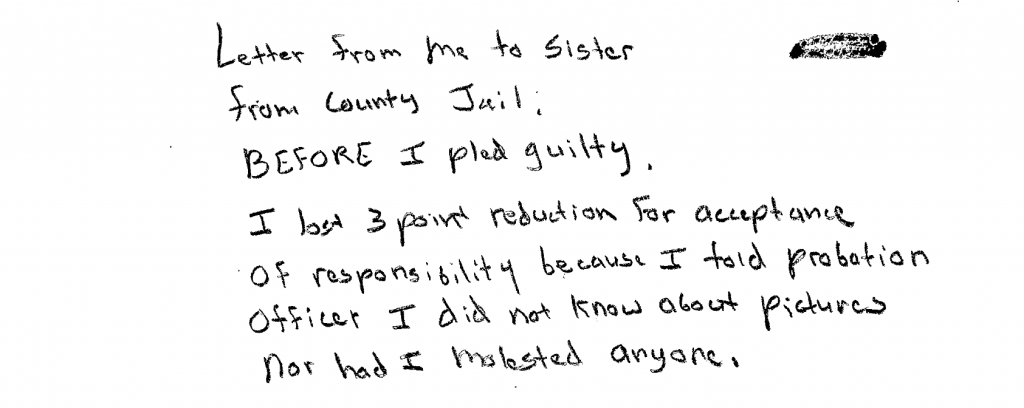 Letter from me to sister
from County Jail;
BEFORE I pled guilty.
I lost 3 point reduction for acceptance
of responsibility because I told probation
officer I did not know about pictures
nor had I molested anyone.